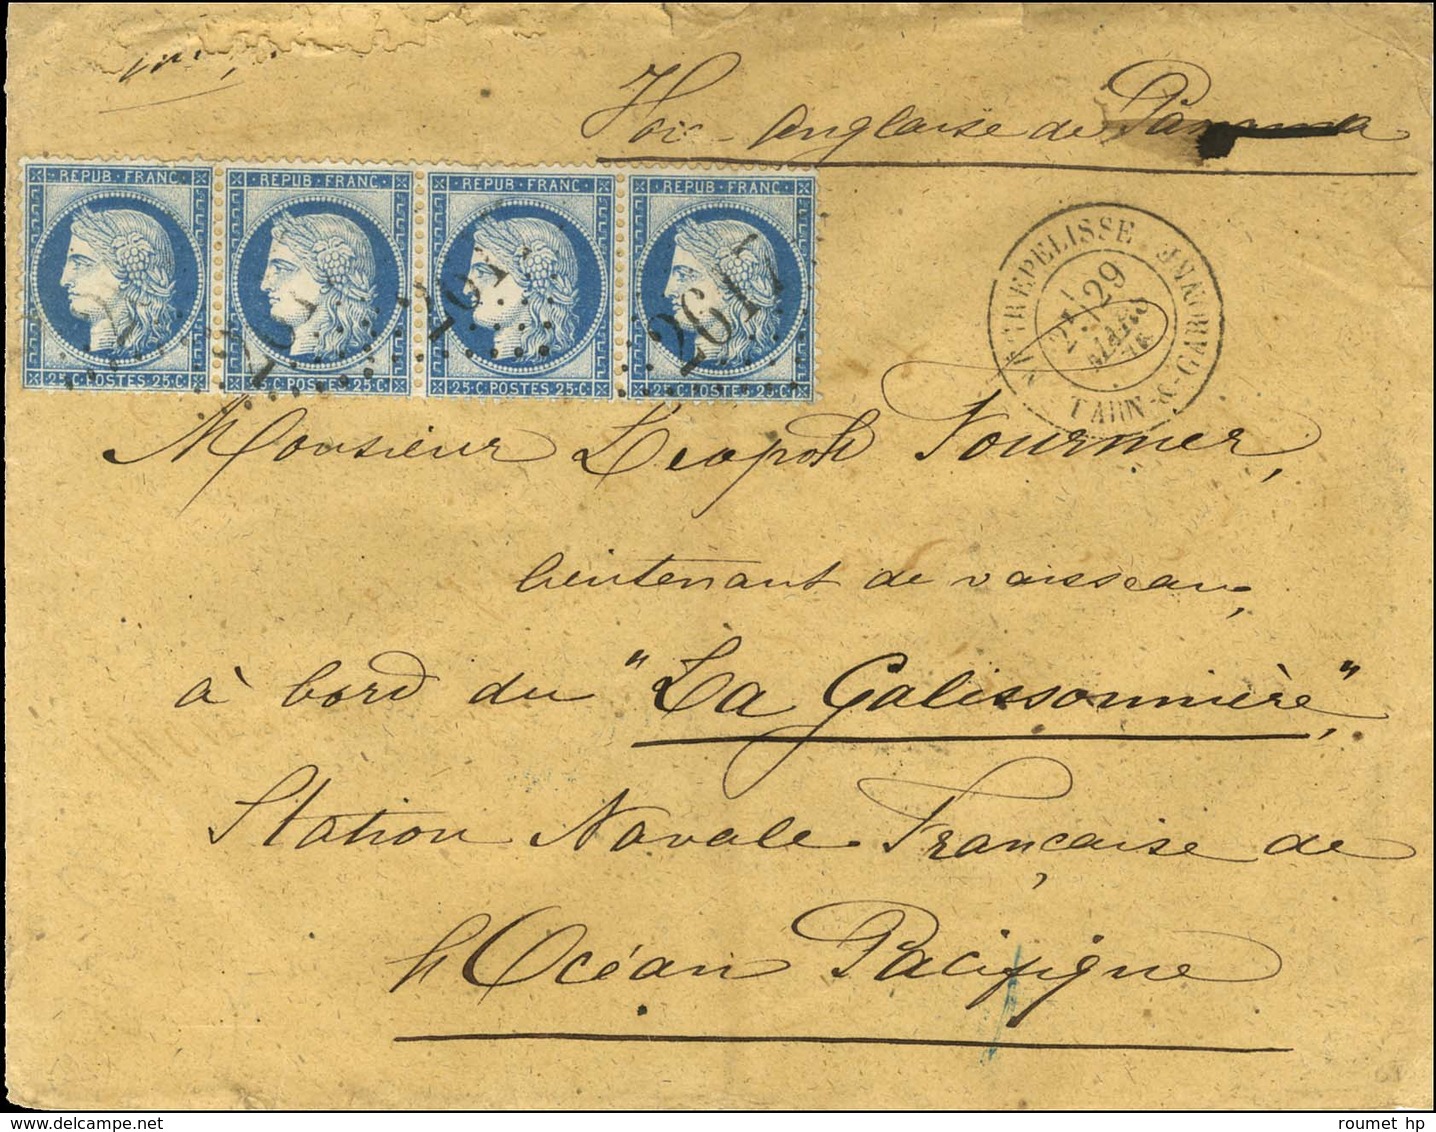 Voie Anglaise de Panama
REPUB·FRANC· REPUB·FRANC· REPUB·FRANC· REPUB·FRANC·
25·C·POSTES·25·C· 25·C·POSTES·25·C· 25·C·POSTES·25·C· 25·C·POSTES·25·C·
2617
NÈGREPELISSE
29
MARS
TARN-&-GARONNE
Monsieur Léopold Fournier,
lieutenant de vaisseau,
à bord du "La Galissonnière",
Station Navale Française de
l'Océan Pacifique
roumet hp